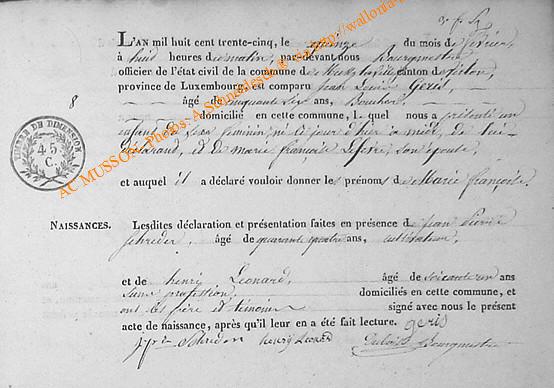 L'AN mil huit cent trente-cinq, le quinze du mois de février
à huit heures du matin, par-devant nous Bourgmestre
officier de l'état civil de la commune de canton de
province de Luxembourg, est comparu jean Louis Geris,
8
âgé de cinquante six ans, Boucher,
domicilié en cette commune, lequel nous a présenté un
enfant du sexe féminin, né le jour d'hier à midi, de lui
déclarant, et de marie françoise Lefevre, son épouse,
TIMBRE DE DIMENSION
45
C.
et auquel il a déclaré vouloir donner les prénoms de Marie françoise.
NAISSANCES. Lesdites déclaration et présentation faites en présence de jean pierre
schreder, âgé de quarante quatre ans, cultivateur,
et de henry Leonard, âgé de soixante un ans
sans profession, domiciliés en cette commune, et
ont les père et témoins signé avec nous le présent
acte de naissance, après qu'il leur en a été fait lecture. geris
schreder henry Leonard Bourgmestre
AC MUSSON - Photos: A